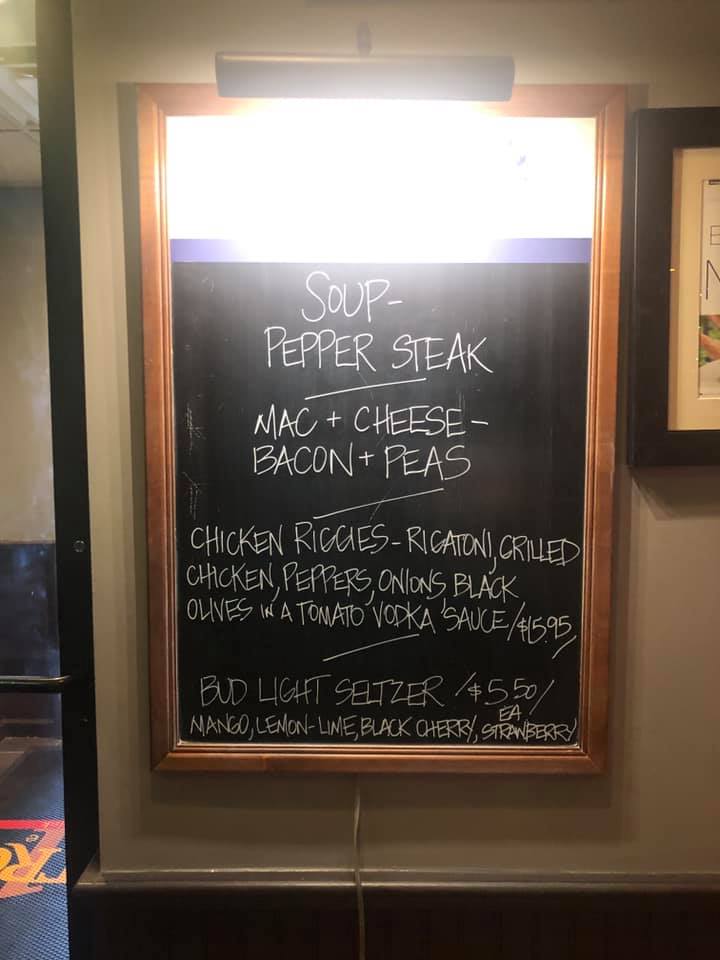 SOUP-
PEPPER STEAK
MAC + CHEESE-
BACON + PEAS
CHICKEN RIGGIES - RIGATONI, GRILLED
CHICKEN, PEPPERS, ONIONS, BLACK
OLIVES IN A TOMATO VODKA SAUCE /$15.95
BUD LIGHT SELTZER /$5.50/
EA
MANGO, LEMON-LIME, BLACK CHERRY, STRAWBERRY